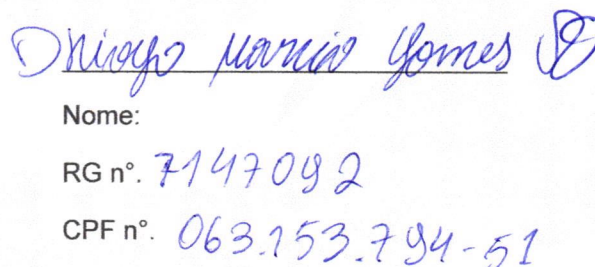 Dhiogo Marcio Gomes
Nome:
RG n°. 7147092
CPF n°. 063.153.794-51